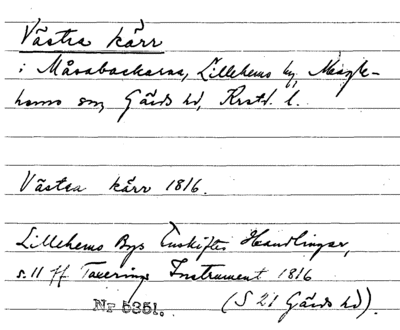 Västra kärr
i Måsabackarna, Lillehems by, Maglehems sn, Gärds hd, Krstd. l.
Västra kärr 1816.
Lillehems Bys Enskiftes Handlingar,
s. 11 ff Taxerings Instrument 1816
Nr 5351. (S 21 Gärds hd).